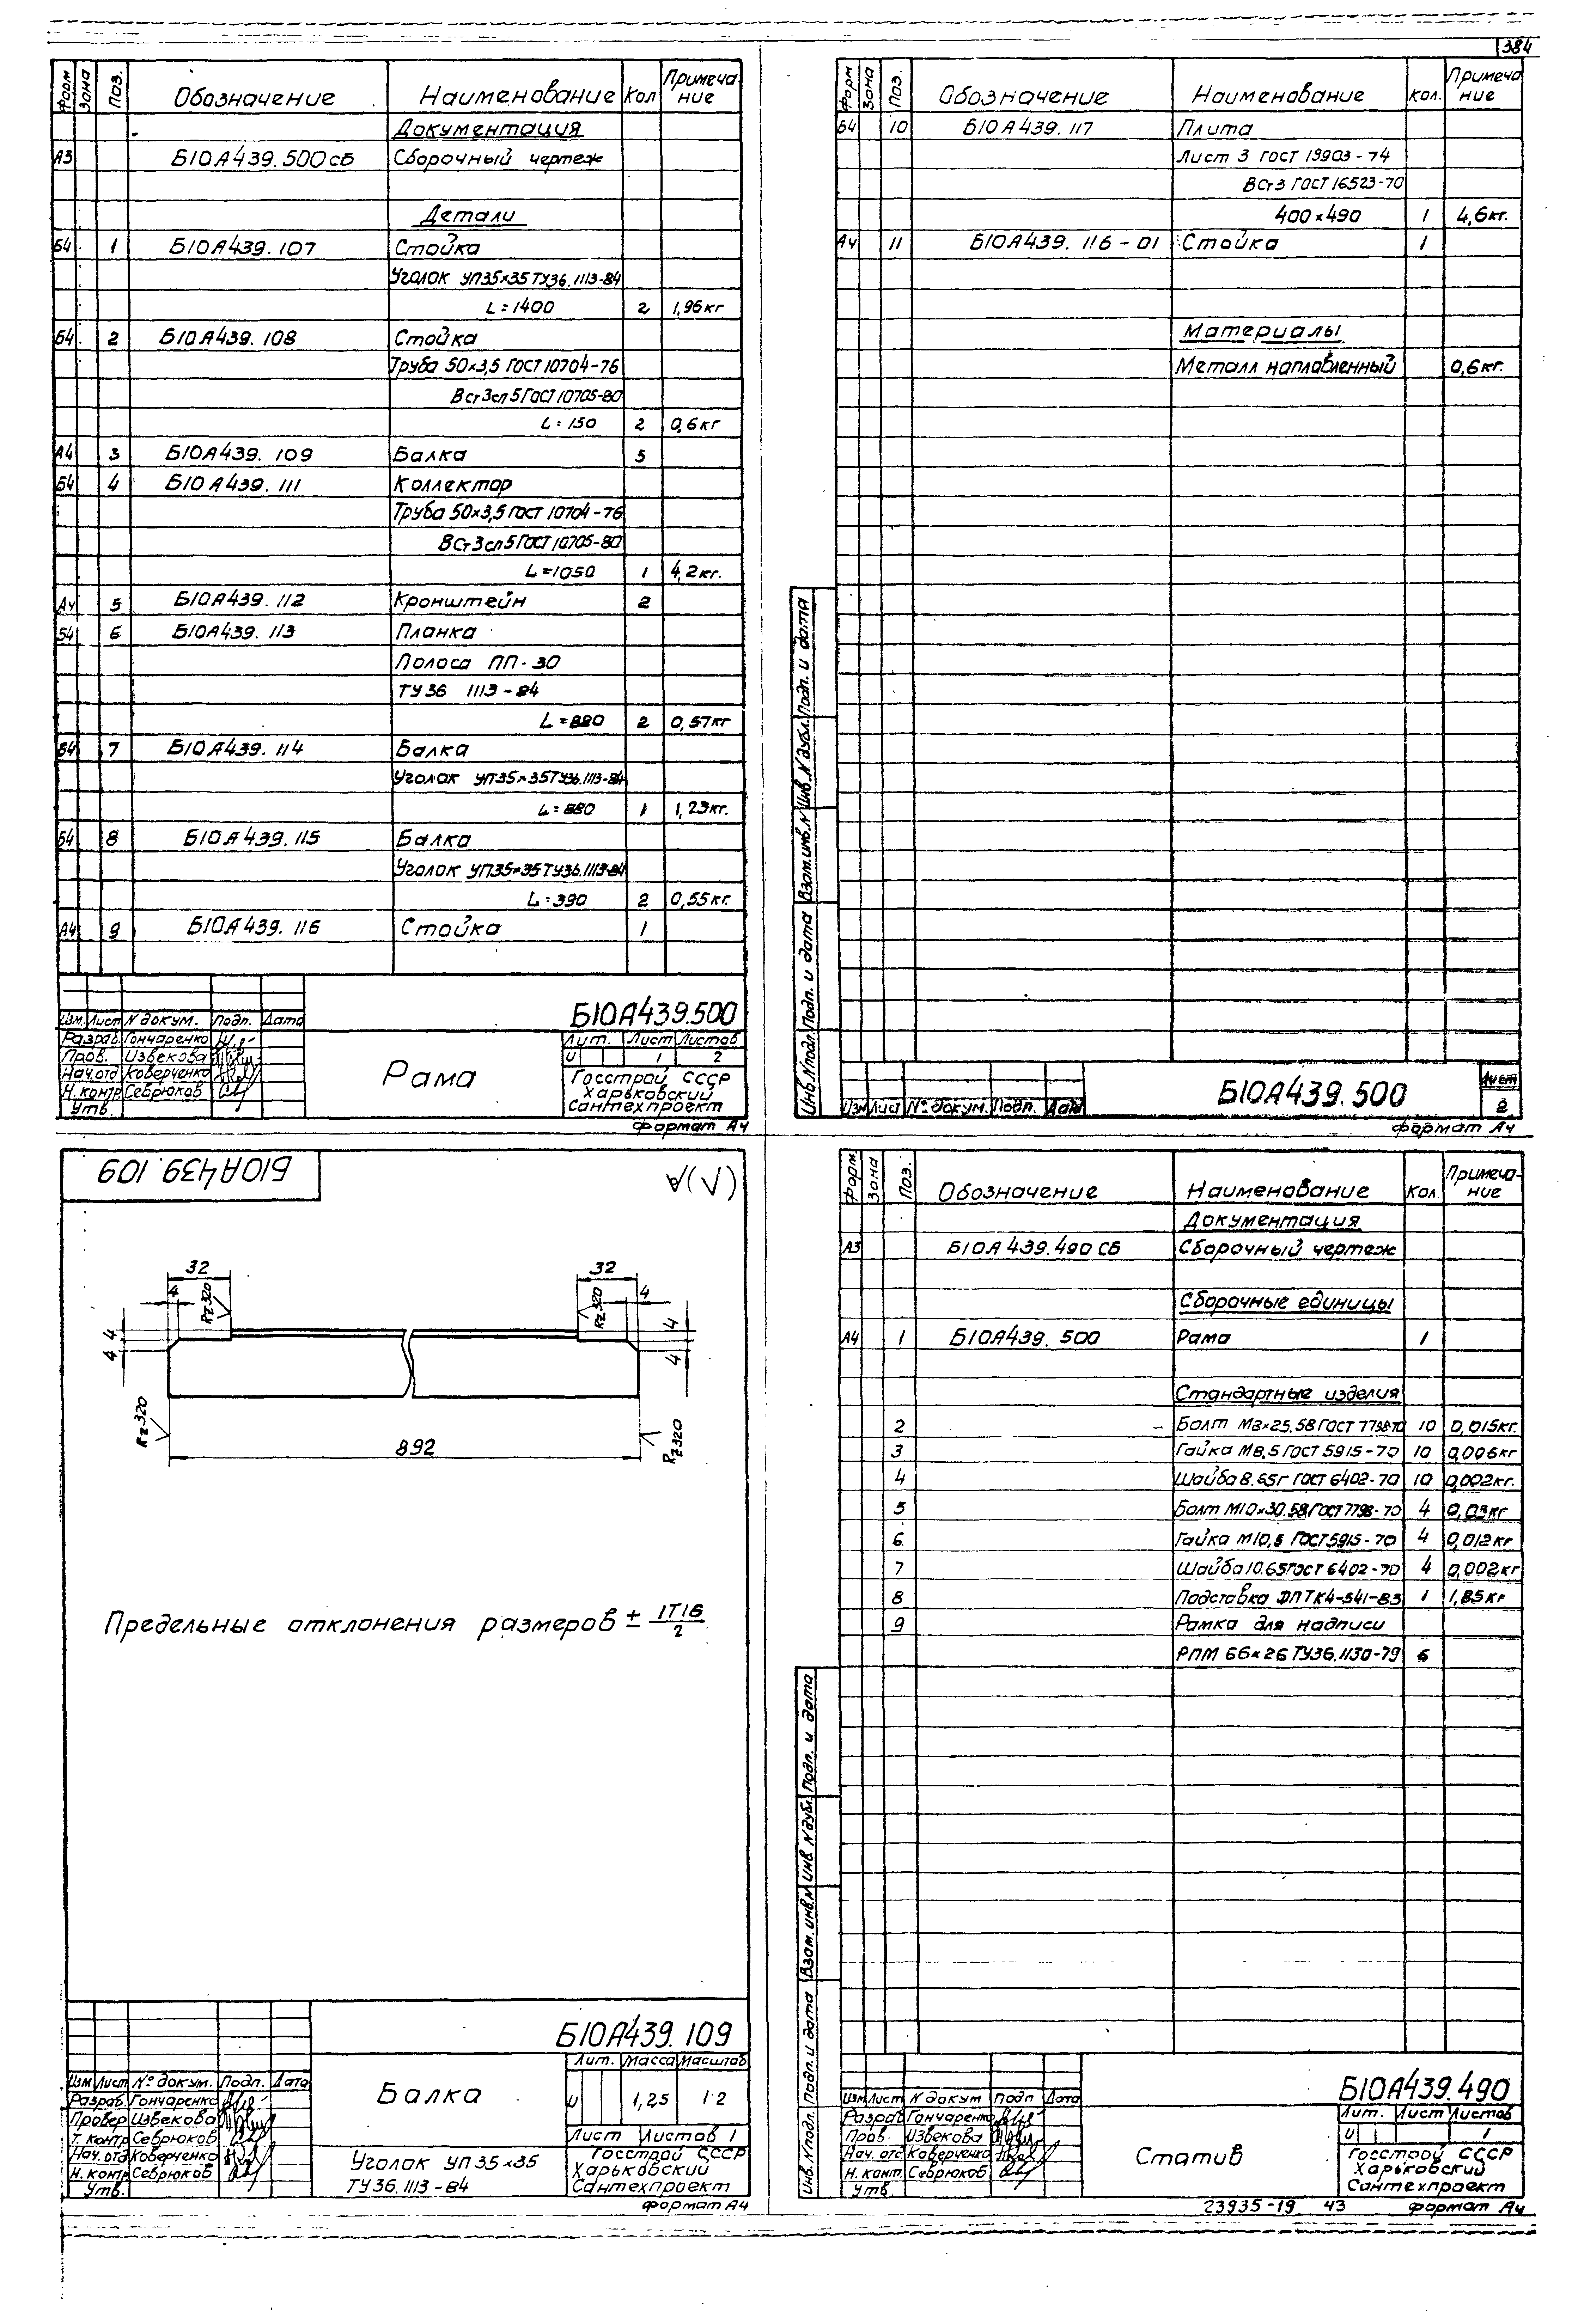 384
Форм Зона Поз. Обозначение Наименование Кол Примеча-
ние
Документация
А3 Б10А439.500СБ Сборочный чертеж
Детали
Б4 1 Б10А439.107 Стойка
Уголок УП35х35 ТУ36.1113-84
L=1400 2 1,96кг
Б4 2 Б10А439.108 Стойка
Труба 50х3,5 ГОСТ 10704-76
ВСт3сп5 ГОСТ 10705-80
L=150 2 0,6кг
А4 3 Б10А439.109 Балка 5
Б4 4 Б10А439.111 Коллектор
Труба 50х3,5 ГОСТ 10704-76
ВСт3сп5 ГОСТ 10705-80
L=1050 1 4,2кг.
А4 5 Б10А439.112 Кронштейн 2
Б4 6 Б10А439.113 Планка
Полоса ПП-30
ТУ36 1113-84
L=880 2 0,57кг
Б4 7 Б10А439.114 Балка
Уголок УП35х35 ТУ36.1113-84
L=880 1 1,23кг.
Б4 8 Б10А439.115 Балка
Уголок УП35х35 ТУ36.1113-84
L=390 2 0,55кг.
А4 9 Б10А439.116 Стойка 1
Б10А439.500
Изм. Лист N докум. Подп. Дата
Разраб. Гончаренко
Пров. Извекова
Нач.отд Коверченко
Н. контр Севрюков
Утв.
Рама
Лит. Лист Листов
И 1 2
Госстрой СССР
Харьковский
Сантехпроект
формат А4
Форм Зона Поз. Обозначение Наименование Кол. Примеча
ние
Б4 10 Б10А439.117 Плита
Лист 3 ГОСТ 19903-74
ВСт3 ГОСТ 16523-70
400х490 1 4,6кг.
А4 11 Б10А439.116-01 Стойка 1
Материалы
Металл наплавленный 0,6кг.
Инв.N подл. Подп. и дата Взам.инв.N Инв.N дубл. Подп. и дата
Изм Лист N° докум. Подп. Дата
Б10А439.500
Лист
2
формат А4
Б10А439.109
(√)
32 32
4 4
4 4
4 4
Rz320 Rz320
Rz320 Rz320
892
Предельные отклонения размеров ± IT16/2
Б10А439.109
Изм Лист N° докум. Подп. Дата
Разраб. Гончаренко
Провер Извекова
Т. контр Севрюков
Нач.отд Коверченко
Н. контр Севрюков
Утв.
Балка
Лит. Масса Масштаб
И 1,25 1:2
Лист Листов 1
Уголок УП 35х35
ТУ36.1113-84
Госстрой СССР
Харьковский
Сантехпроект
формат А4
Форм. Зона Поз. Обозначение Наименование Кол. Примеча-
ние
Документация
А3 Б10А439.490СБ Сборочный чертеж
Сборочные единицы
А4 1 Б10А439.500 Рама 1
Стандартные изделия
2 Болт М8х25.58 ГОСТ 7798-70 10 0,015кг.
3 Гайка М8,5 ГОСТ 5915-70 10 0,006кг
4 Шайба 8.65г ГОСТ 6402-70 10 0,002кг.
5 Болт М10х30.58 ГОСТ 7798-70 4 0,03кг
6 Гайка М10,5 ГОСТ 5915-70 4 0,012кг
7 Шайба 10.65г ГОСТ 6402-70 4 0,002кг
8 Подставка ДПТК4-541-83 1 1,85кг
9 Рамка для надписи
РПМ 66х26 ТУ36.1130-79 6
Инв.N подл. Подп. и дата Взам.инв.N Инв N дубл. Подп. и дата
Б10А439.490
Изм Лист N докум Подп Дата
Разраб Гончаренко
Пров. Извекова
Нач. отд Коверченко
Н. конт. Севрюков
Утв.
Статив
Лит. Лист Листов
И 1
Госстрой СССР
Харьковский
Сантехпроект
23935-19 43 формат А4